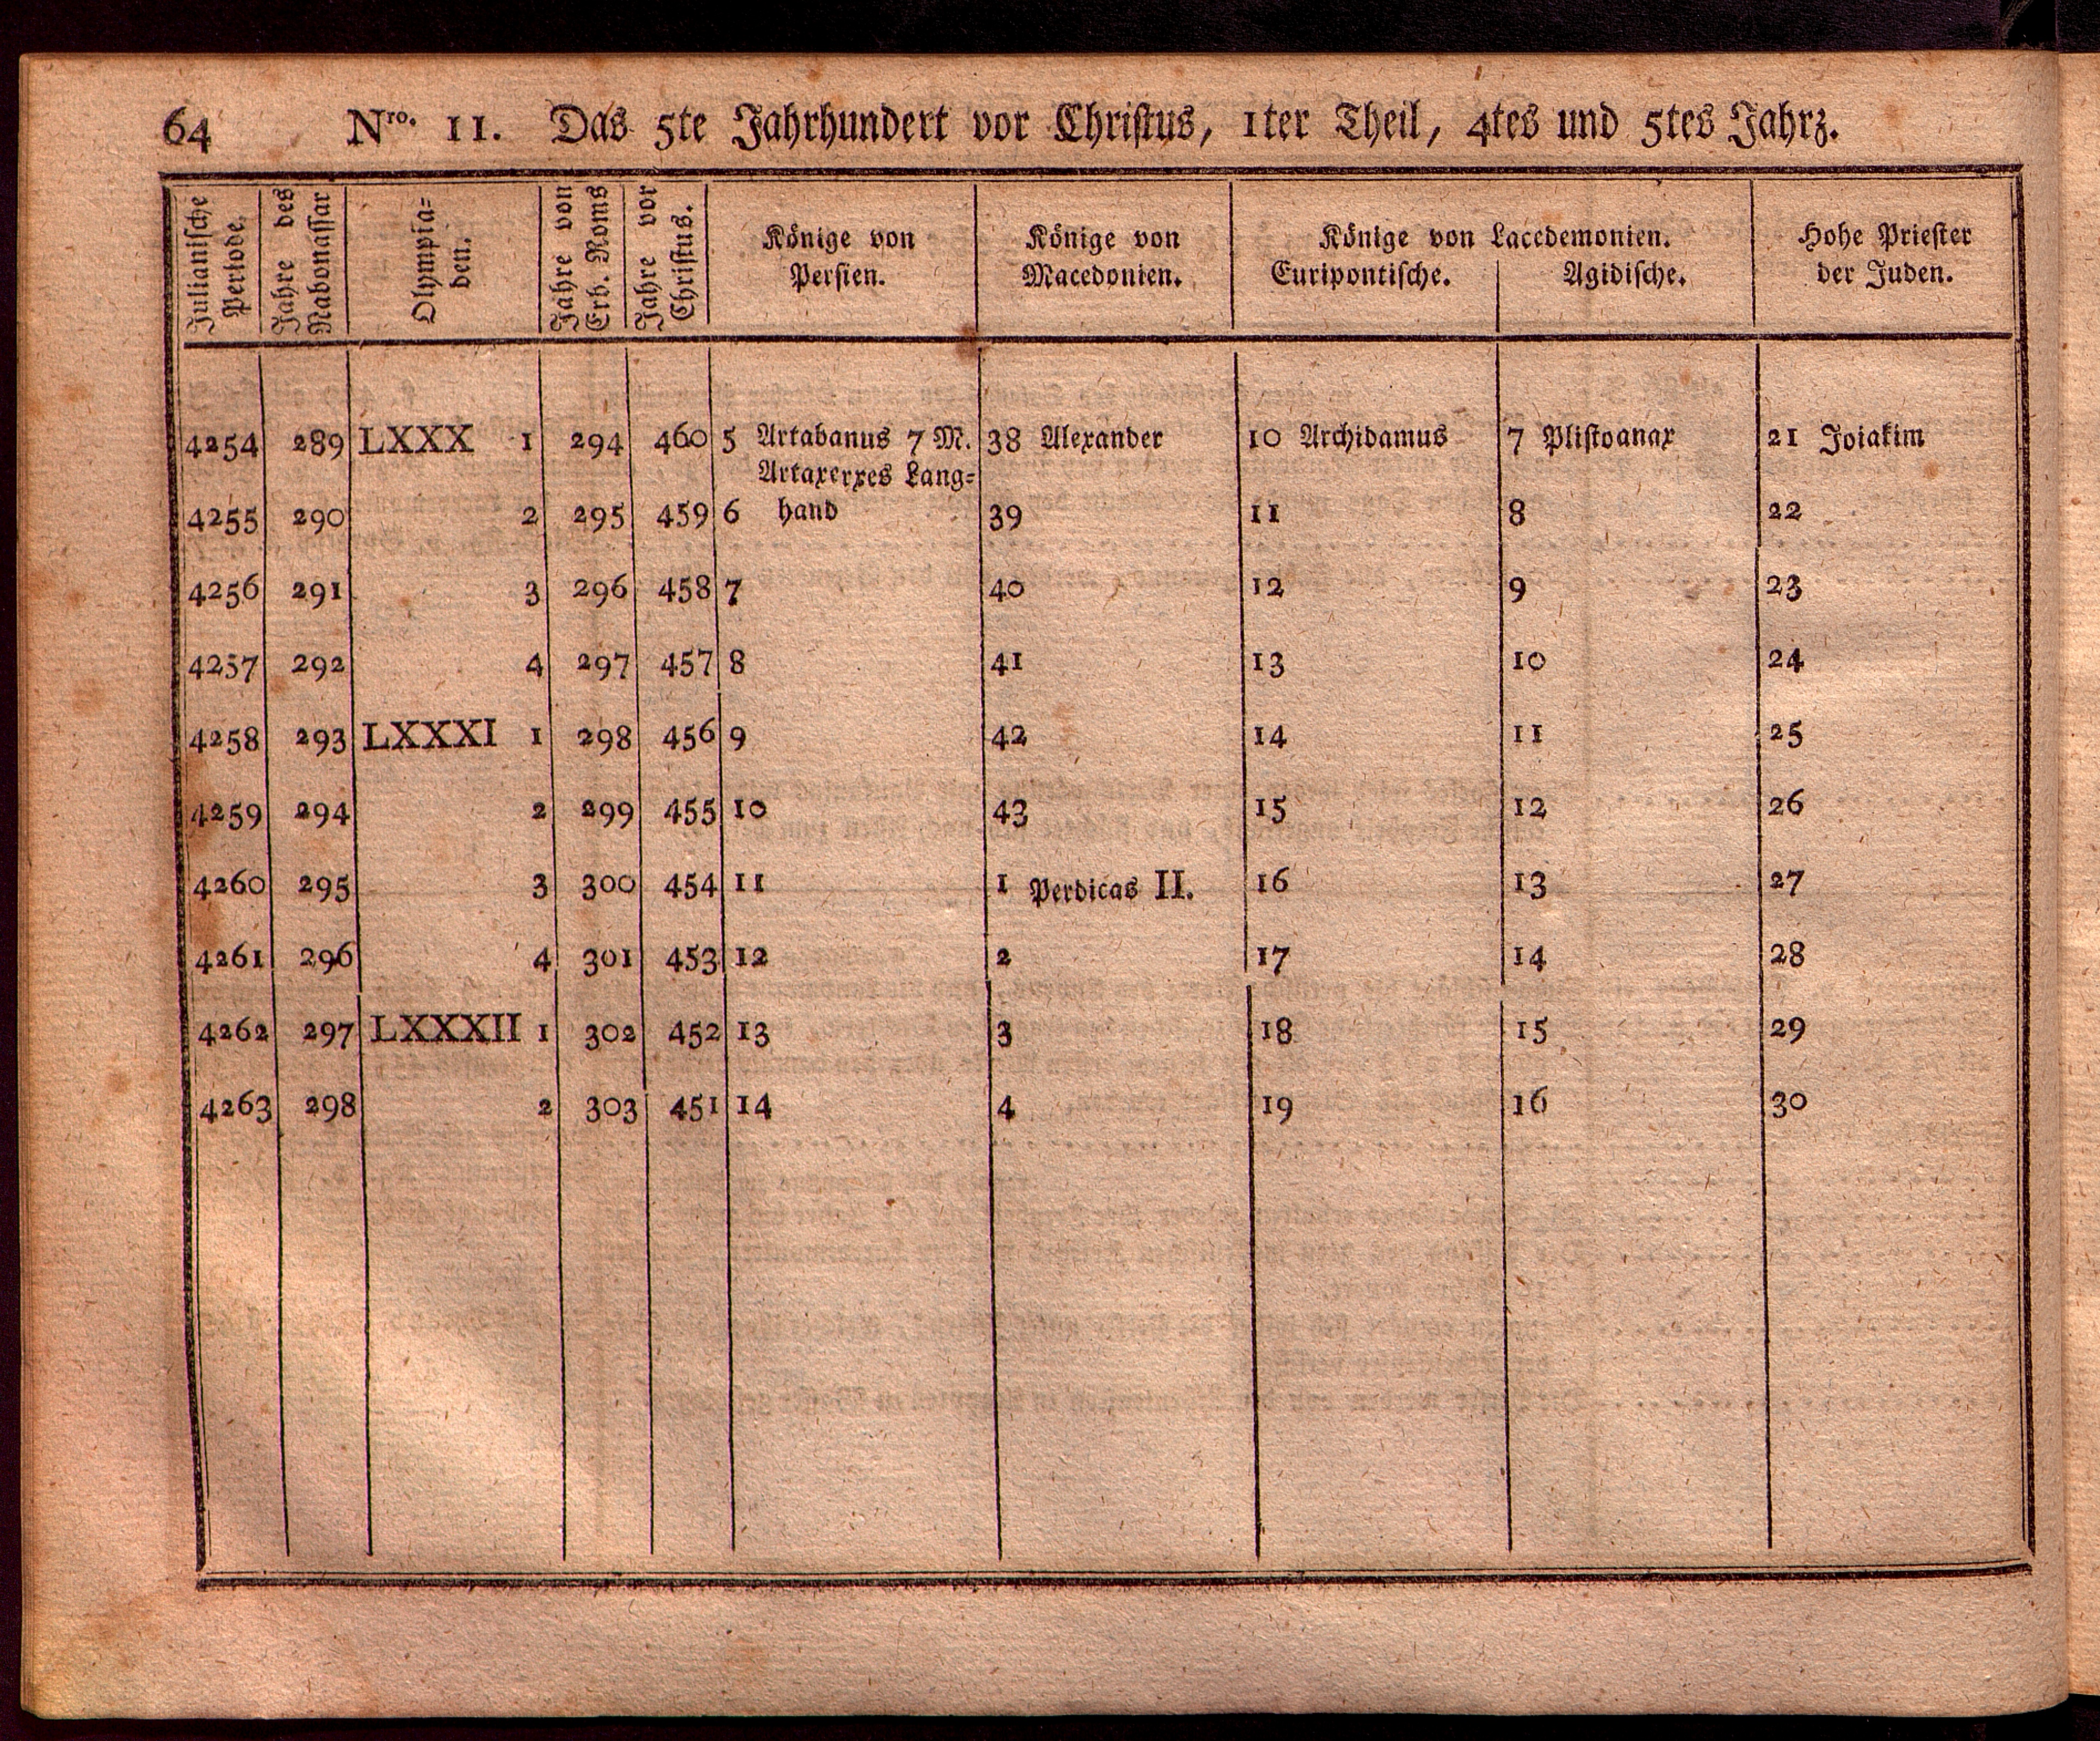 64 Nro. 11. Das 5te Jahrhundert vor Christus, 1ter Theil, 4tes und 5tes Jahrz.
Julianische Periode.
Jahre des Nabonassar
Olympia=
den.
Jahre von Erb. Roms
Jahre vor Christus.
Könige von
Persien.
Könige von
Macedonien.
Könige von Lacedemonien.
Euripontische. Agidische.
Hohe Priester
der Juden.
4254 289 LXXX 1 294 460 5 Artabanus 7 M. 38 Alexander 10 Archidamus 7 Plistoanax 21 Joiakim
Artaxerxes Lang=
4255 290 2 295 459 6 hand 39 11 8 22
4256 291 3 296 458 7 40 12 9 23
4257 292 4 297 457 8 41 13 10 24
4258 293 LXXXI 1 298 456 9 42 14 11 25
4259 294 2 299 455 10 43 15 12 26
4260 295 3 300 454 11 1 Perdicas II. 16 13 27
4261 296 4 301 453 12 2 17 14 28
4262 297 LXXXII 1 302 452 13 3 18 15 29
4263 298 2 303 451 14 4 19 16 30